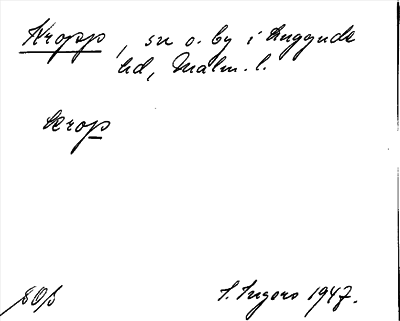 Kropp, sn o. by i Luggude
hd, Malm. l.
krop
SOβ S. Ingers 1947.